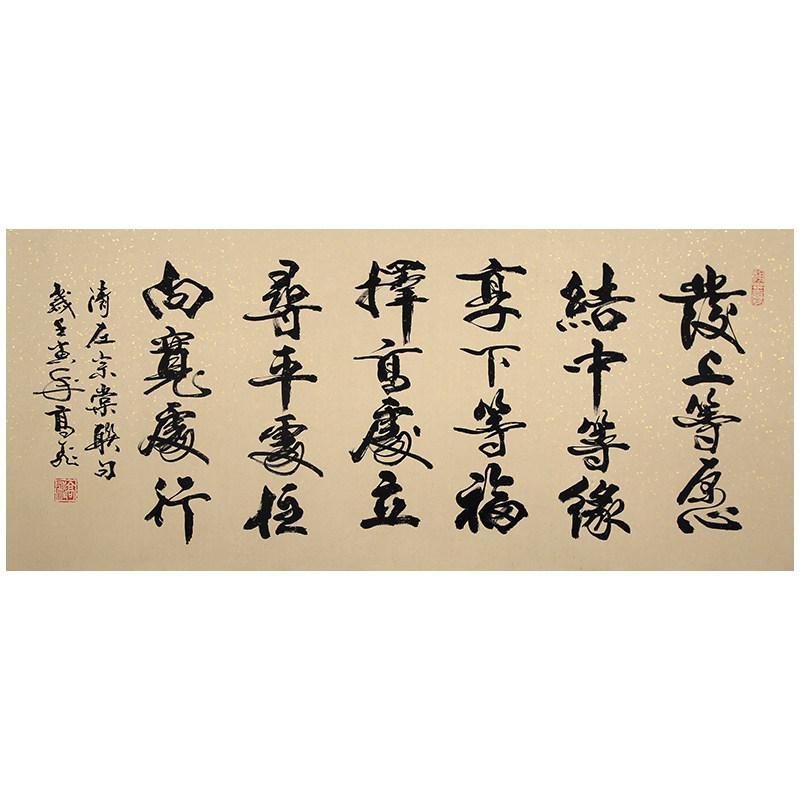 發上等愿
結中等緣
享下等福
擇高處立
尋平處住
向寬處行
清左宗棠聯句
高飛